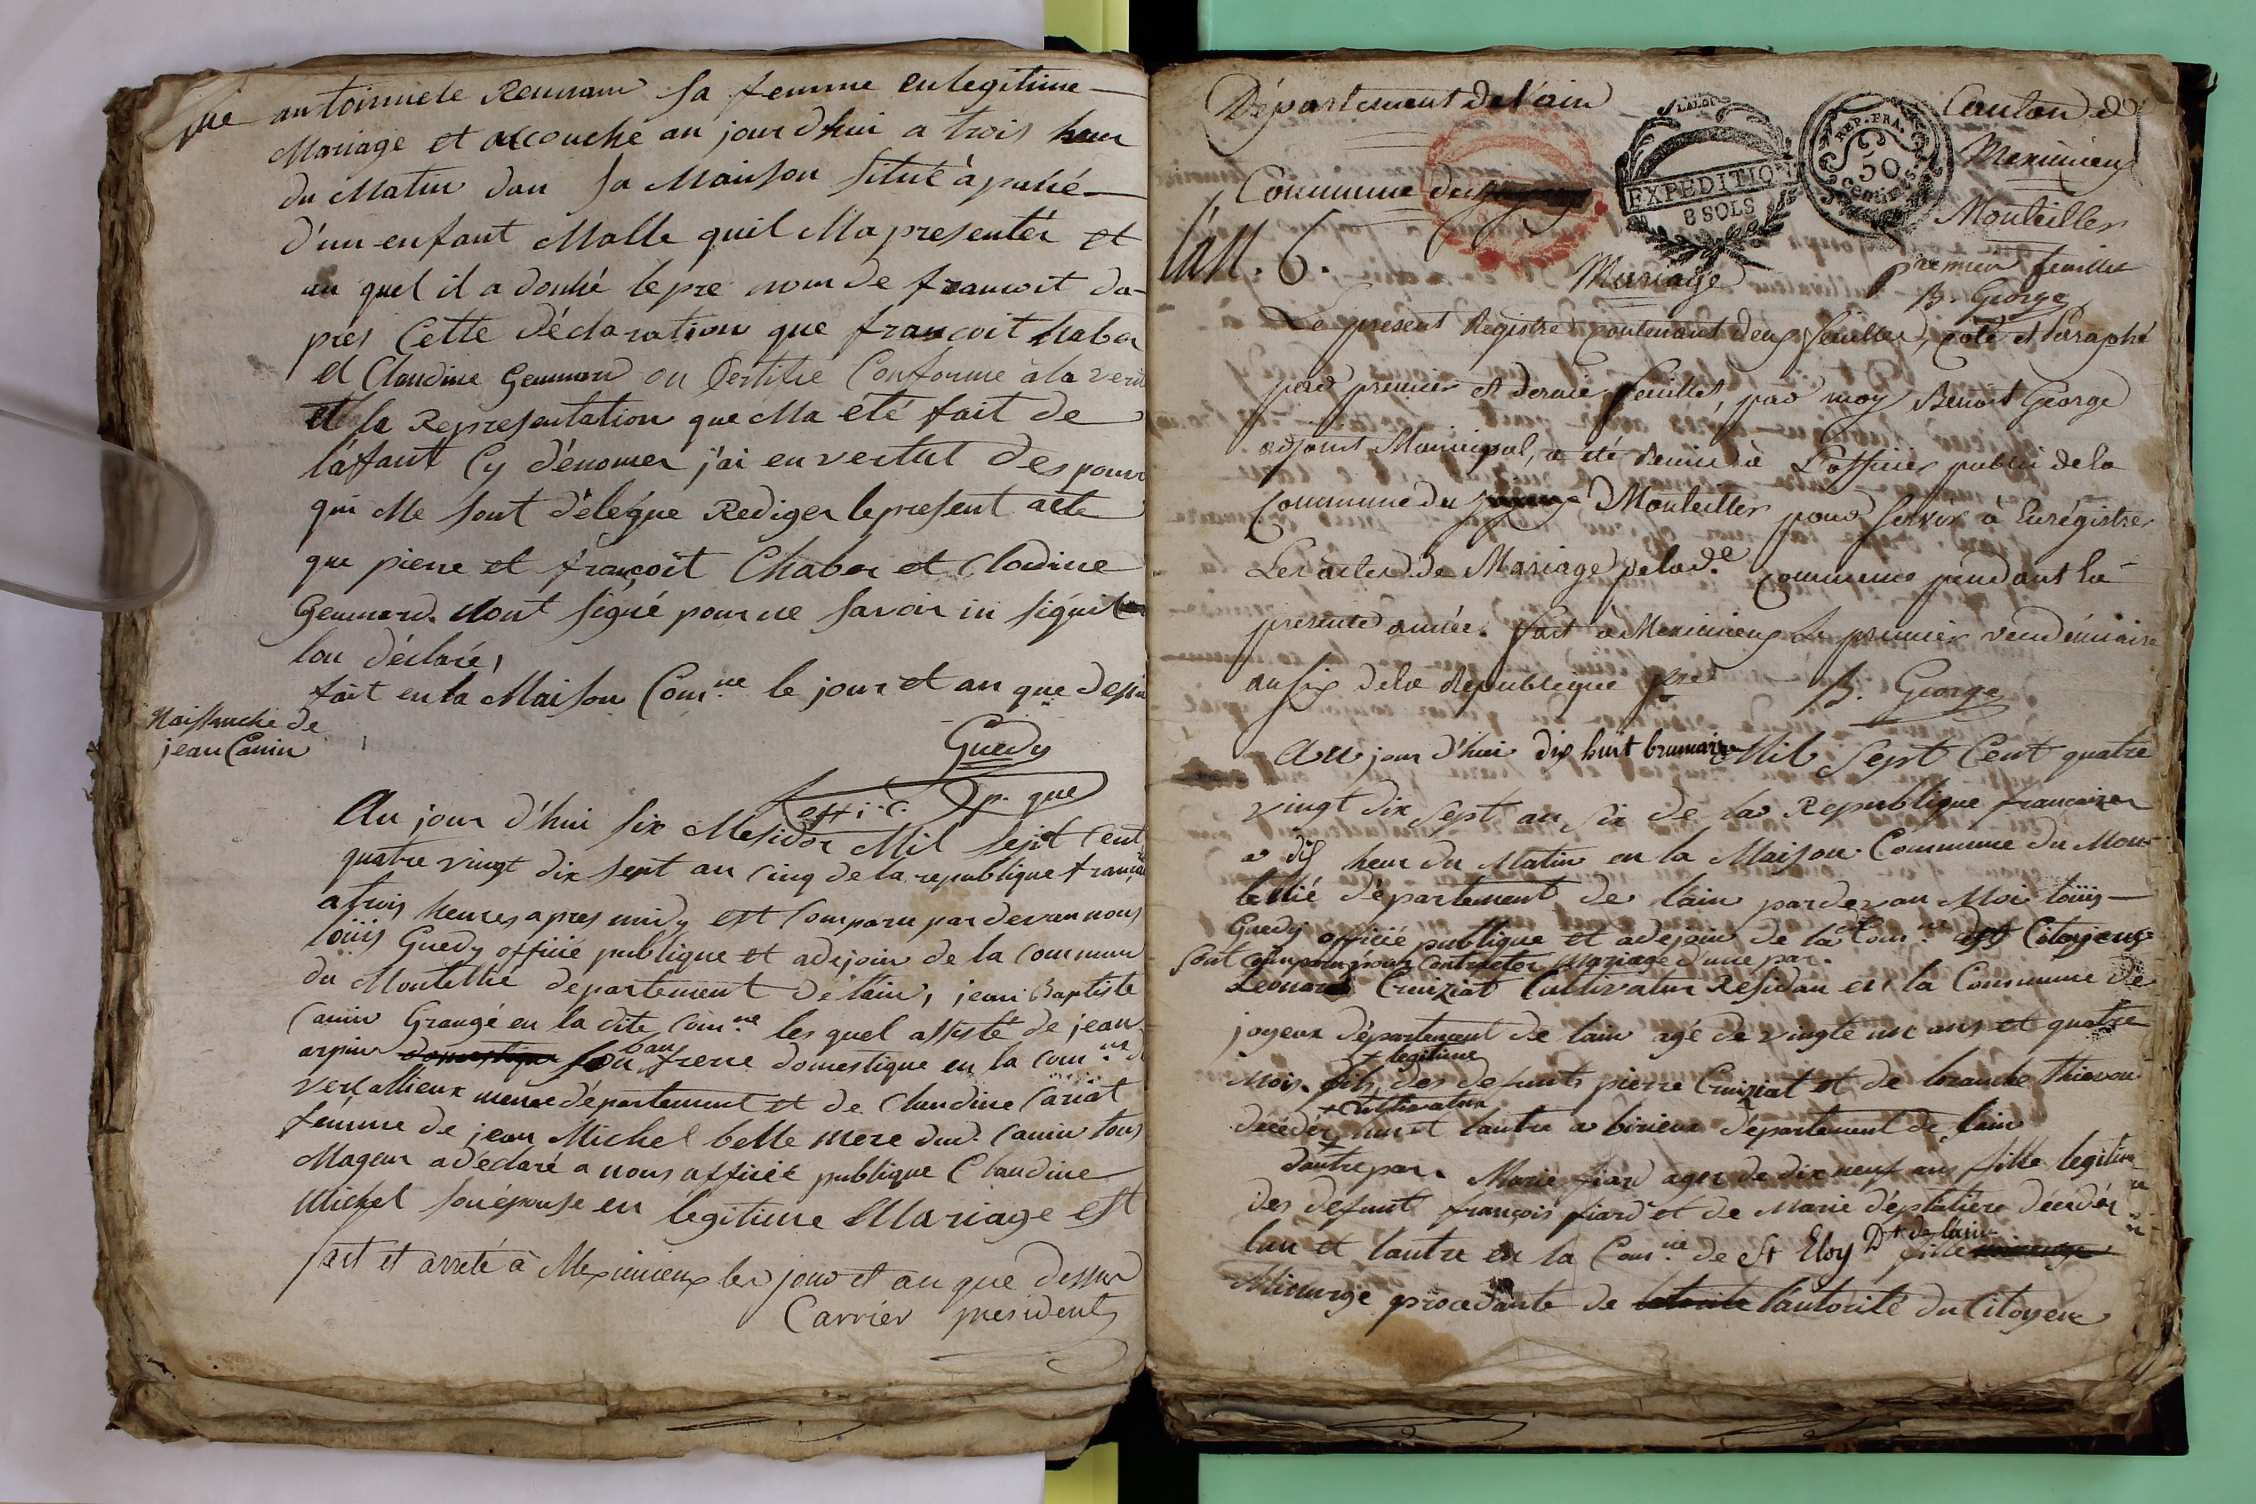 que antoinnete Rennam sa femme en legitime
Mariage et accouche au jour d'hui a trois heur
du Matin dan sa Maison situé à
d'un enfant Malle quil Ma presentér et
au quel il a donné le pre nom de francoit da-
pres Cette déclaration que francoit habor
et Claudine Gemmard on Certifié Conforme à la verit
et la Representation que Ma été fait de
l'afant Cy dénomer j'ai en vertut des pouvoir
qui Me sont délégue Rediger le present acte
que piere et francoit Chabor et Clodine
Gemmard. Nont signé pour ne savoir ni signé
lon déclaré,
fait en la Maison Com.ne le jour et an que desu
Guedy
off. p. que
Naissanche de
jean Canin
Au jour d'hui six Mesidor Mil sept Cent
quatre vingt dix sept an Cinq de la republique francai
a trois heures apres midy est Comparu par devan nous
loüis Guedy officié publique et adejoin de la Commun
du Montellié département de l'ain, jean Baptiste
Canin Grangé en la dite Com.ne les quel assisté de jean
arpin domestique son bau frere domestique en la com.ne d
versallieux meme département et de Claudine Cariat
femme de jean Michel belle mere dud. Canin tous
Mageur a déclaré a nous officié publique Claudine
Michel son épouse en légitime Mariage est
fait et arreté à Meximieux les jour et an que dessus
Carrier president
Département de l'ain
Canton de
Meximieux
LALOI
EXPEDITION
8 SOLS
REP. FRA.
50
Centimes
Commune de
Montellier
l'an. 6.
Mariage
premier feuillet
B. George
Le present Registre contenant deux feuilles, coté et Paraphé
par premier et dernier feuillet, par moy Benoit George
adjoint Municipal, a été remis à L'officier public de la
Commune du Montellier pour servir à Enrégistrer
Les actes de Mariage de lad.e Commune pendant la
presente année. fait à Meximieux Le premier vendémiaire
an six de la République
B. George
Au jour d'hui dix huit brumaire Mil sept Cent quatre
vingt dix sept an six de la Republique francaise
a dix heur du Matin en la Maison Commune du Mon-
tellié département de l'ain pardevan Moi loüis
Guedy officié publique et adejoin de lad. Com.ne les Citoyens
sont comparu pour Contracter Mariage d'une par.
Leonard Cruiziat Cultivateur Residan en la Commune de
joyeux département de lain agé de vingte un ans et quatre
Mois. fils + legitime des defunts pierre Cruiziat et de branche thievon
decédér + Cultivateur lun et lautre a birieux département de lain
dautre par. Marie fiard ager de dix neuf ans fille legitim
des defunt françois fiard et de Marie déplatière décedér
lun et lautre en la Com.ne de St Eloy Dt de l'ain fille
Mineure procedante de l'autorité du Citoyen